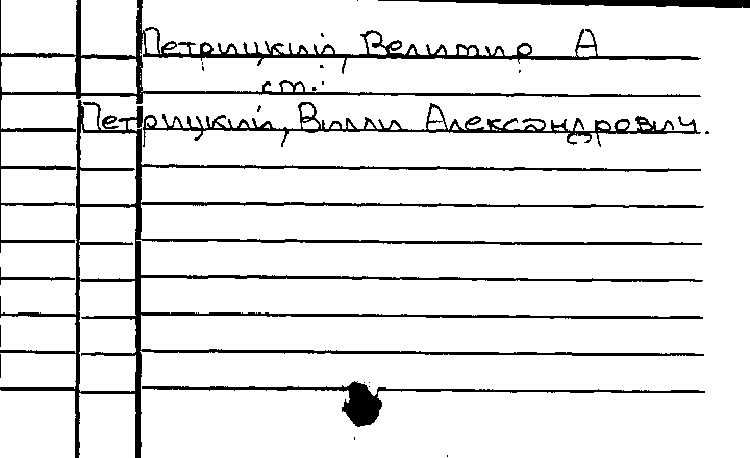 Петрицкий, Велимир А
см.:
Петрицкий, Вилли Александрович.